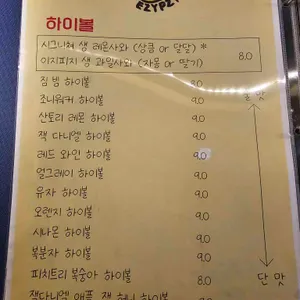 EZYPZY
하이볼
시그니쳐 생 레몬사와 (상큼 or 달달) *
이지피지 생 과일사와 (자몽 or 딸기) 8.0
짐 빔 하이볼 8.0
조니워커 하이볼 9.0
산토리 레몬 하이볼 9.0
잭 다니엘 하이볼 9.0
레드 와인 하이볼 9.0
얼그레이 하이볼 9.0
유자 하이볼 9.0
오렌지 하이볼 9.0
시나몬 하이볼 9.0
복분자 하이볼 9.0
피치트리 복숭아 하이볼 8.0
잭다니엘 애플, 잭 허니 하이볼
맛
단 맛